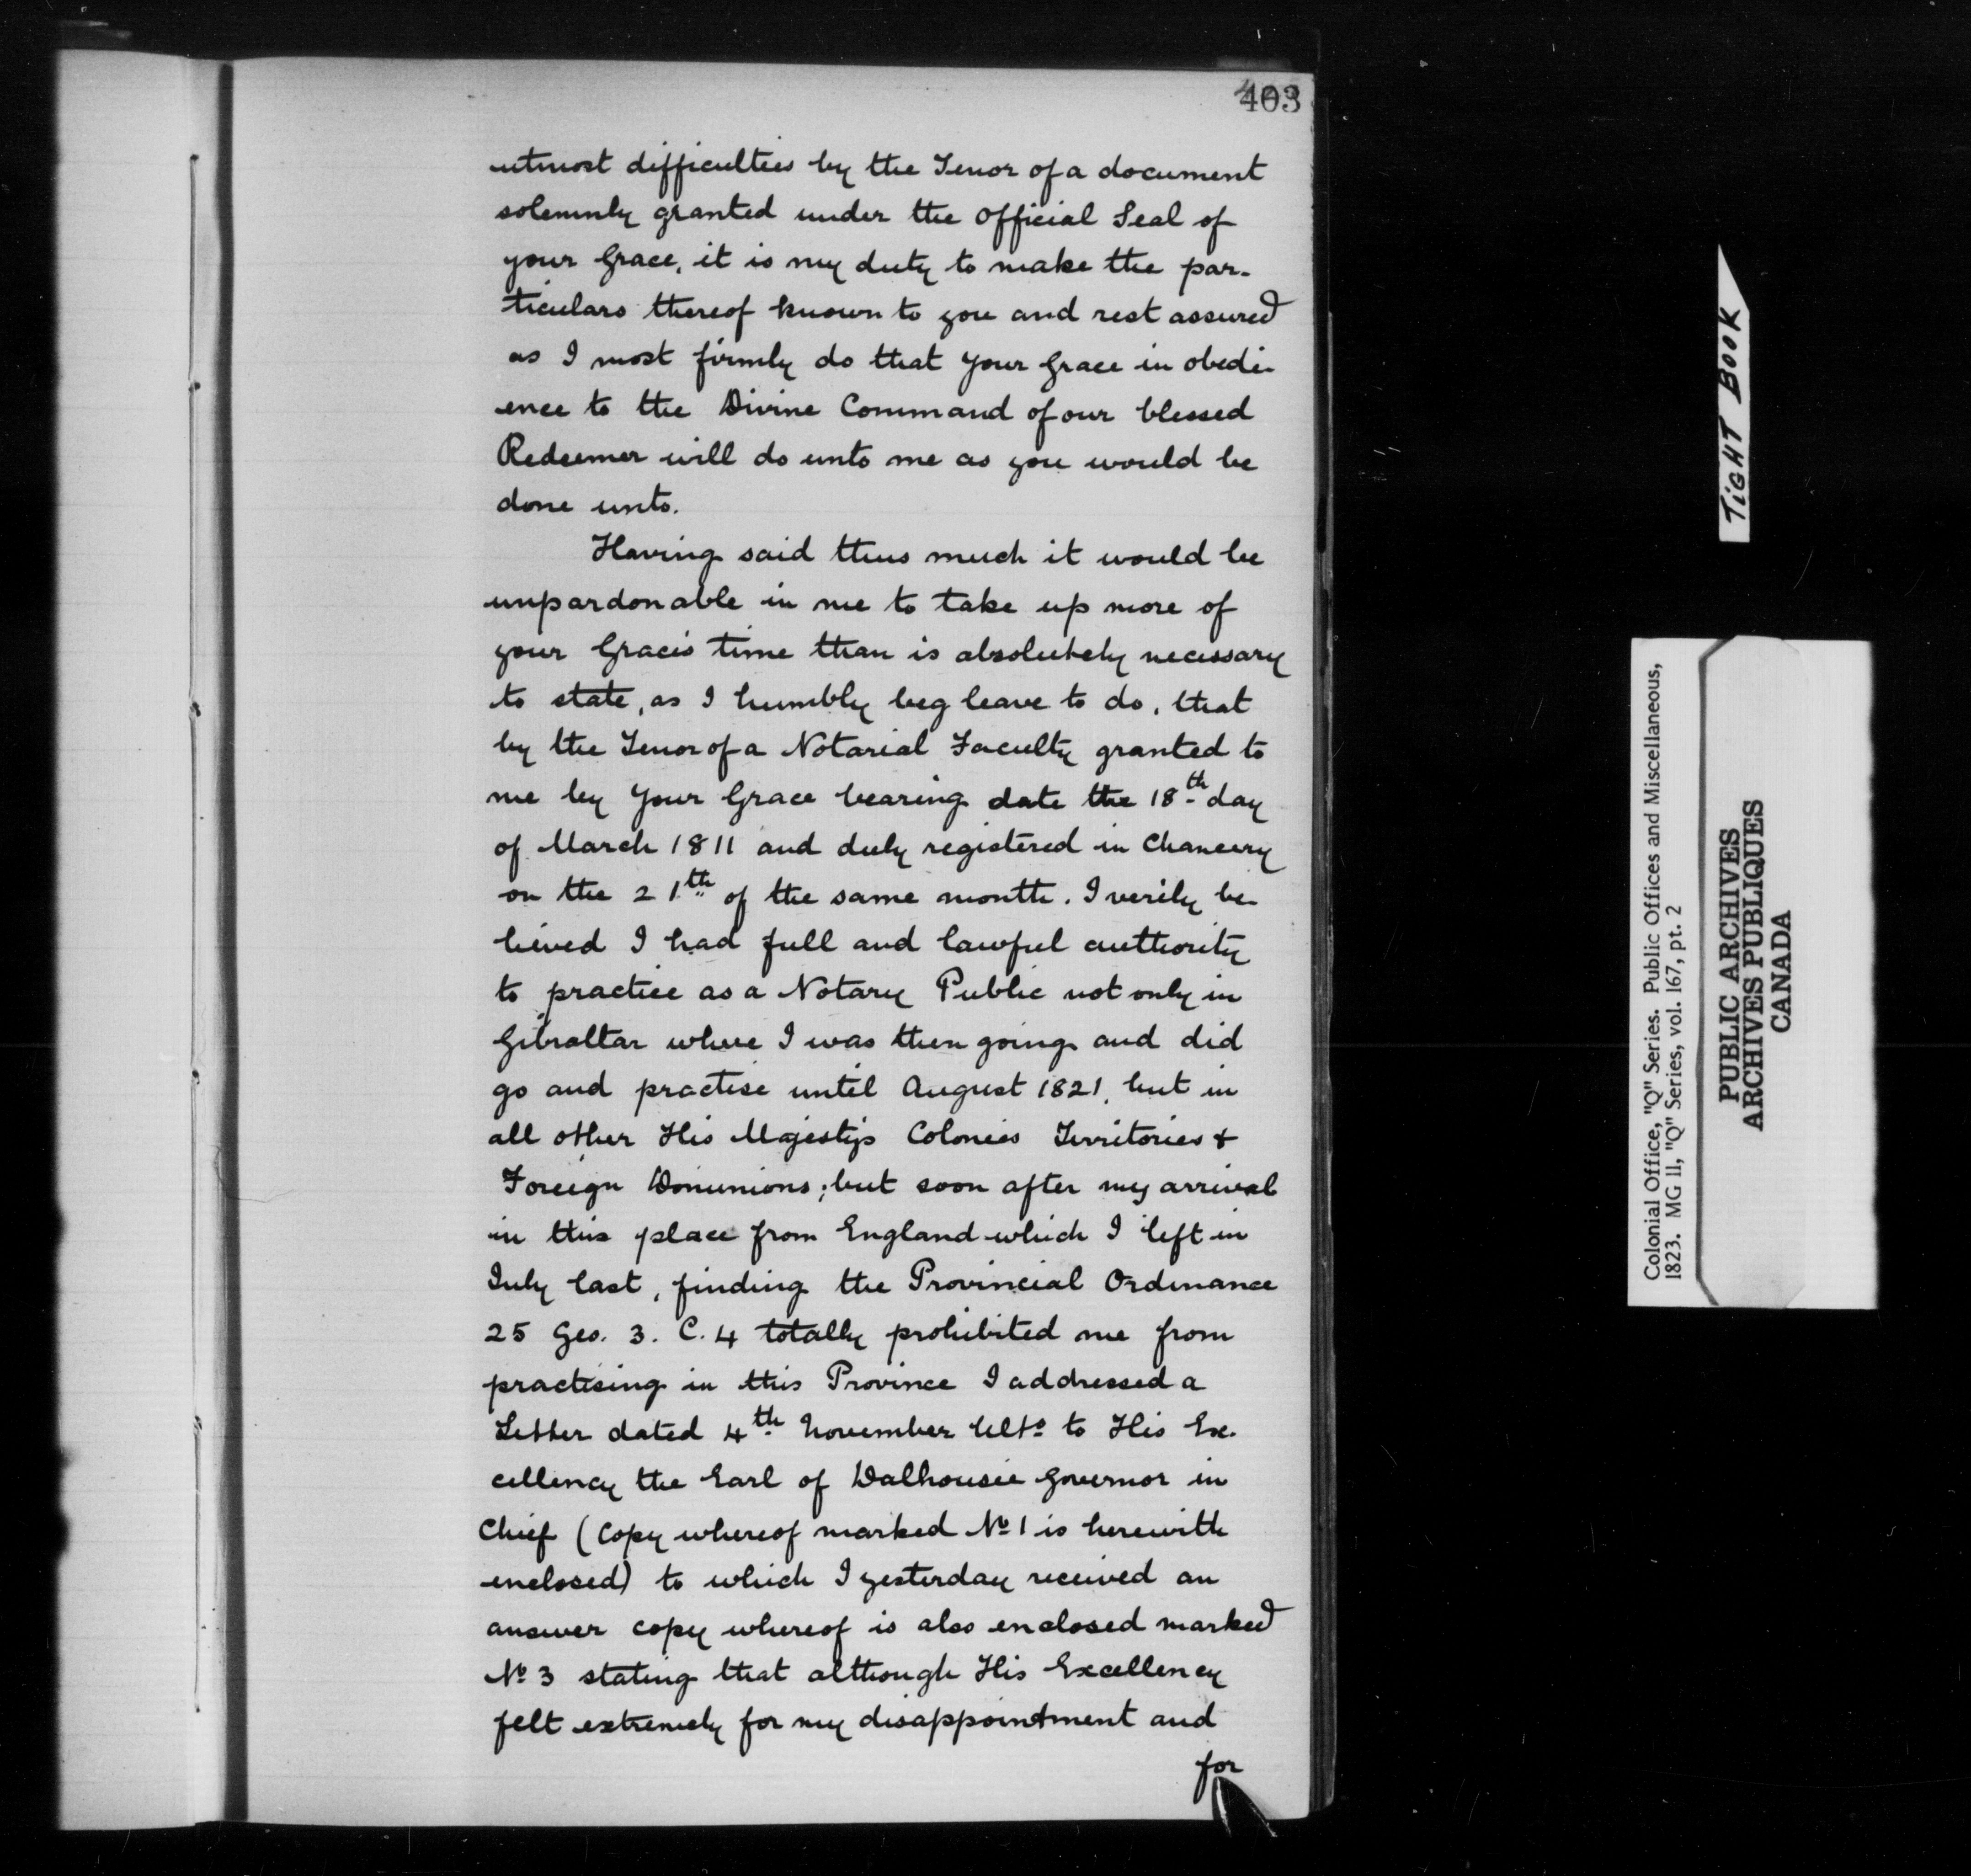 403
utmost difficulties by the Tenor of a document
solemnly granted under the Official Seal of
your Grace, it is my duty to make the par-
ticulars thereof known to you and rest assured
as I most firmly do that your Grace in obedi-
ence to the Divine Command of our blessed
Redeemer will do unto me as you would be
done unto.
Having said thus much it would be
unpardonable in me to take up more of
your Grace's time than is absolutely necessary
to state, as I humbly beg leave to do, that
by the Tenor of a Notarial Faculty granted to
me by Your Grace bearing date the 18th day
of March 1811 and duly registered in Chancery
on the 21th of the same month. I verily be-
lieved I had full and lawful authority
to practice as a Notary Public not only in
Gibraltar where I was then going and did
go and practise until August 1821, but in
all other His Majesty's Colonies Territories &
Foreign Dominions; but soon after my arrival
in this place from England which I left in
July last, finding the Provincial Ordinance
25 Geo. 3. C. 4 totally prohibited me from
practising in this Province I addressed a
Letter dated 4th November Ulto to His Ex-
cellency the Earl of Dalhousie Governor in
Chief (Copy whereof marked No 1 is herewith
enclosed) to which I yesterday received an
answer copy whereof is also enclosed marked
No 3 stating that although His Excellency
felt extremely for my disappointment and
for
TIGHT BOOK
Colonial Office, "Q" Series. Public Offices and Miscellaneous,
1823. MG 11, "Q" Series, vol. 167, pt. 2
PUBLIC ARCHIVES
ARCHIVES PUBLIQUES
CANADA